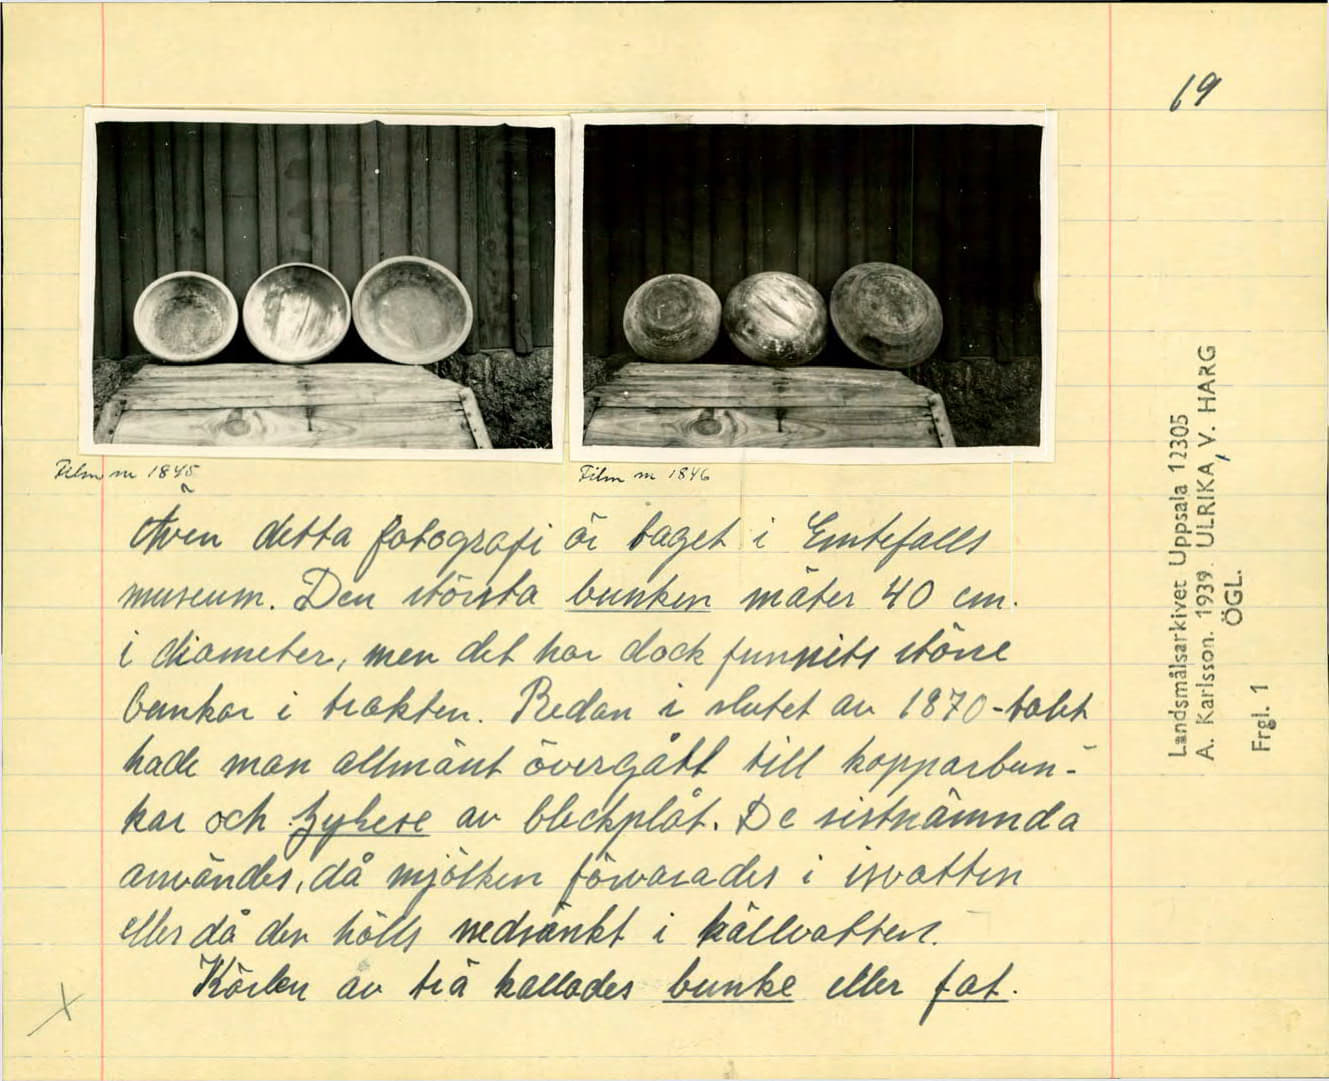 19
Film nr 1845
Film nr 1846
Även detta fotografi är taget i Emtefalls
museum. Den största bunken mäter 40 cm.
i diameter, men det har dock funnits större
bunkar i trakten. Redan i slutet av 1870-talet
hade man allmänt övergått till kopparbun-
kar och byhere av bleckplåt. De sistnämnda
användes, då mjölken förvarades i isvatten
eller då den hölls nedsänkt i källvatten.
Kärlen av trä kallades bunke eller fat.
Landsmålsarkivet Uppsala 12305
A. Karlsson. 1939. ULRIKA, V. HARG
ÖGL.
Frgl. 1